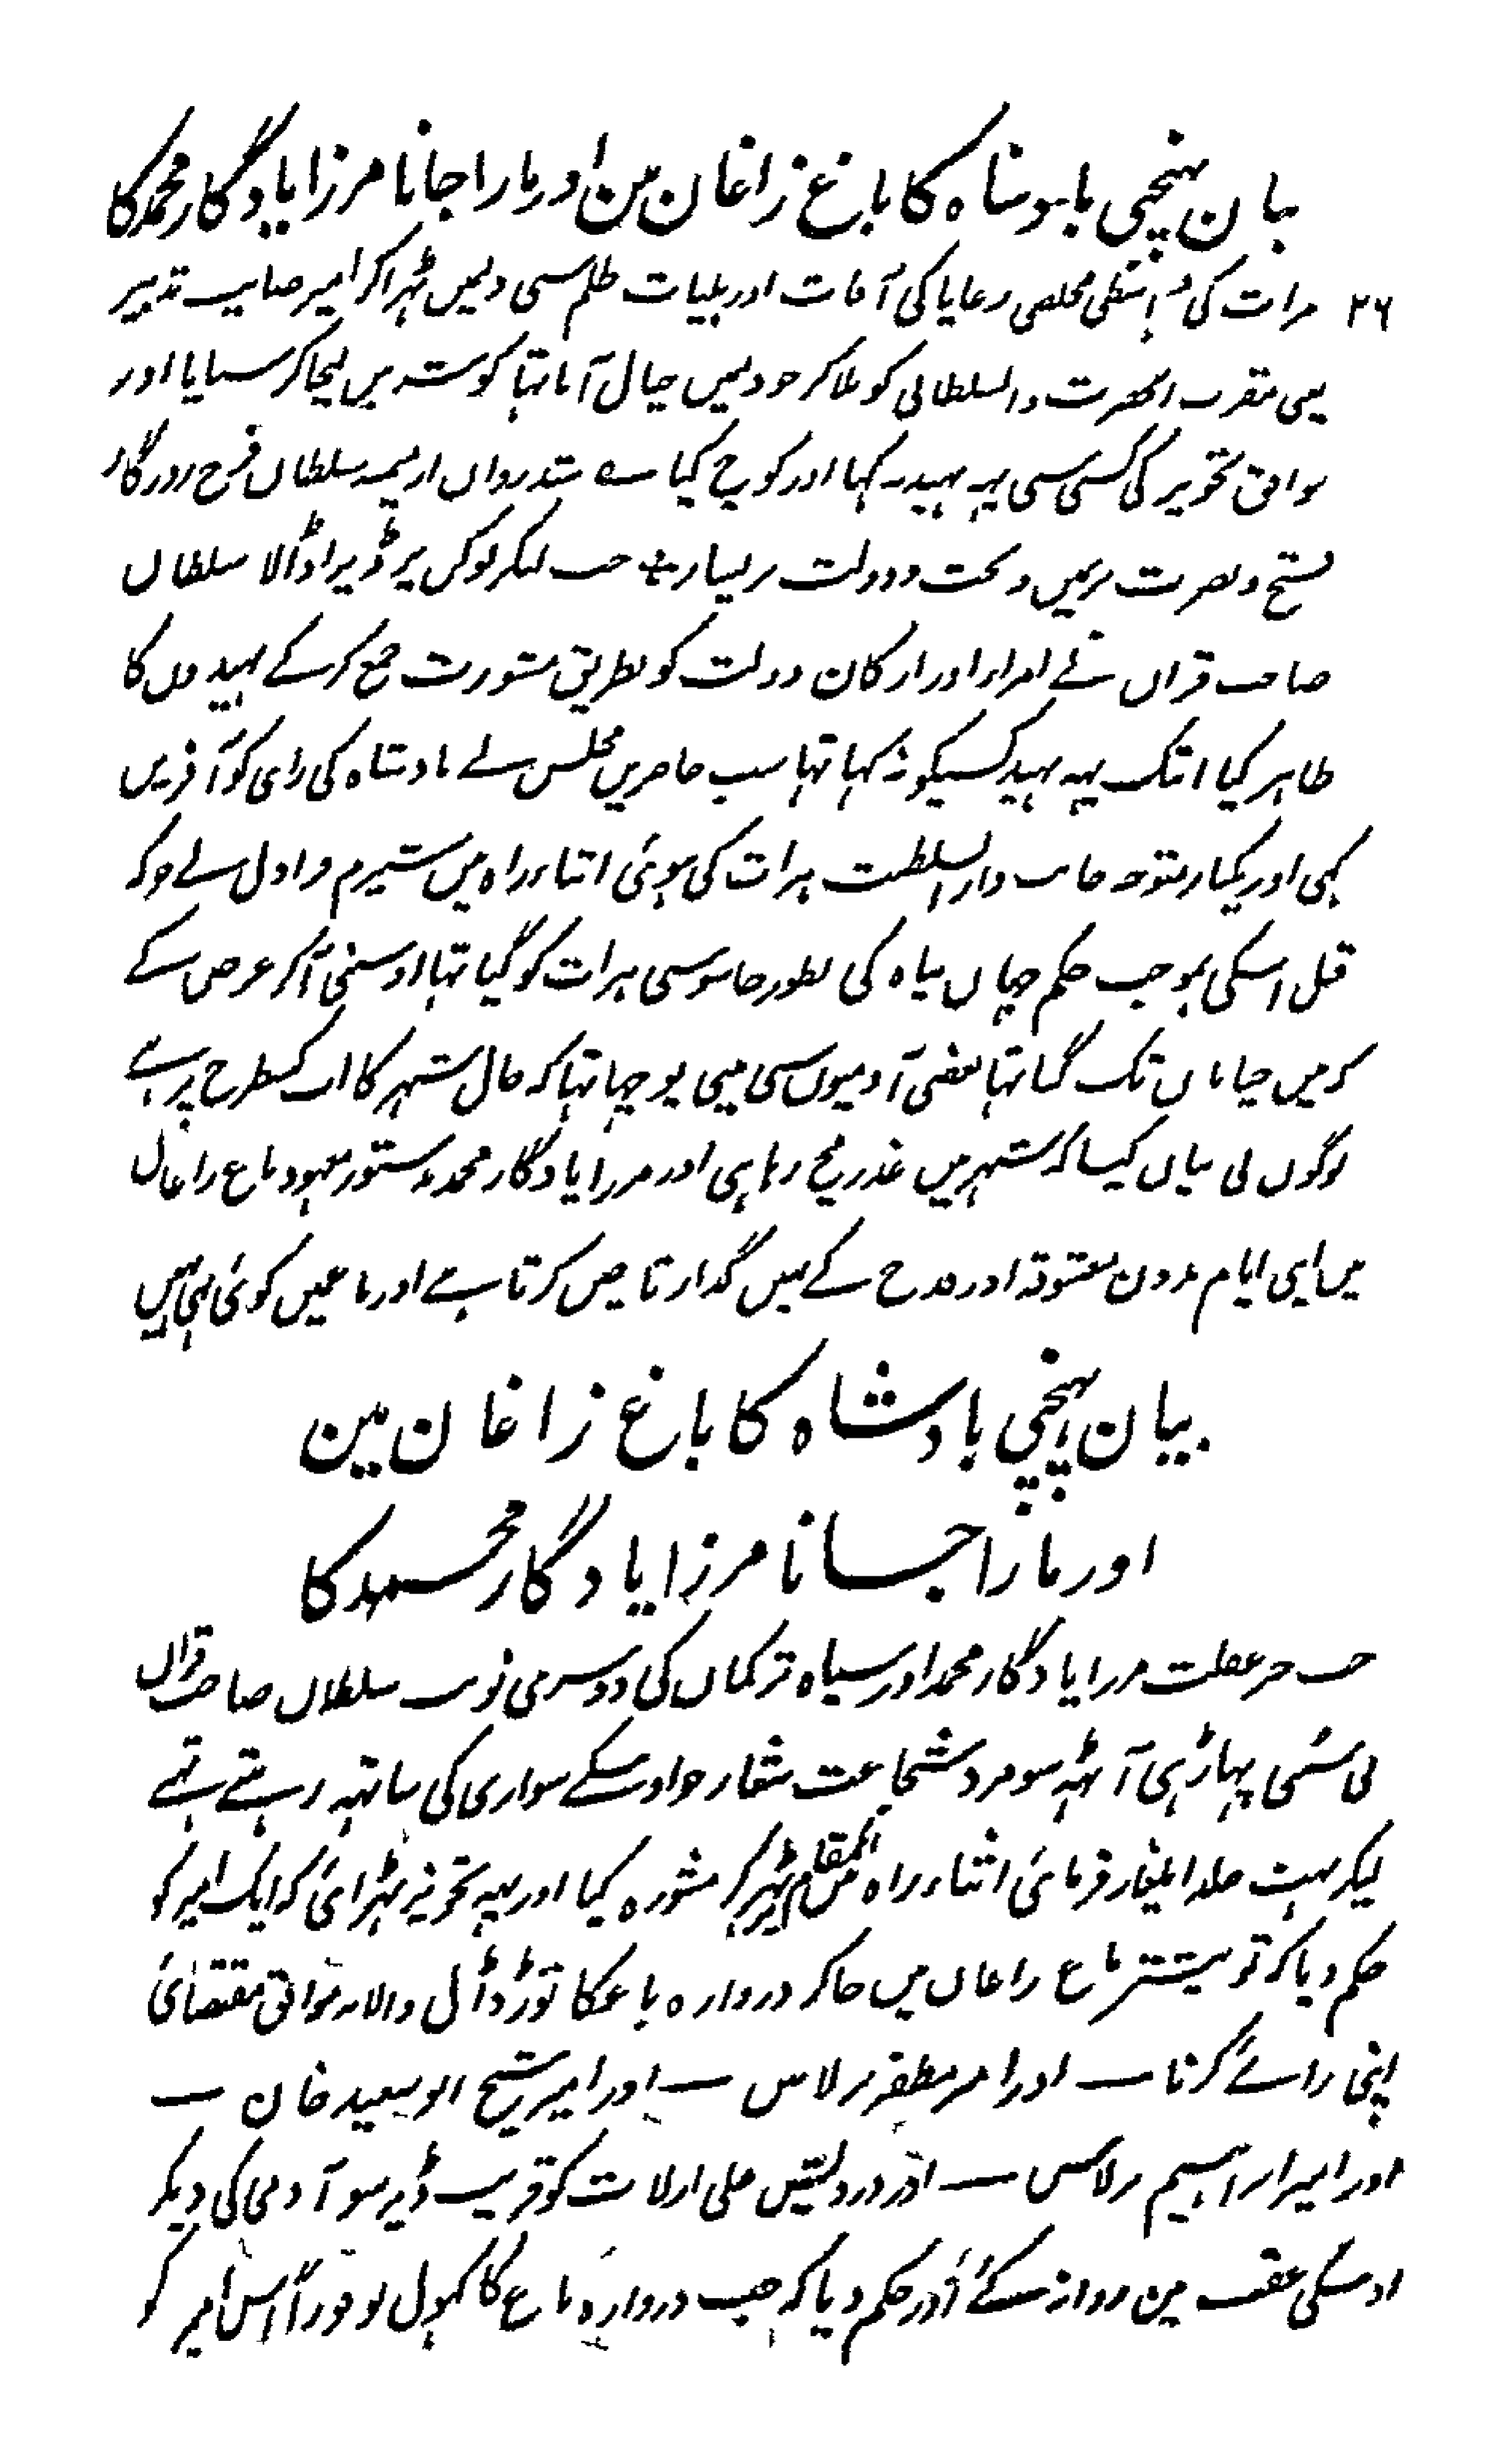 بیان پہنچی بادشاہ کا باغ زاغان مین اور مارا جانا مرزا یادگار محمد کا
۲۶ ہرات کی مخلصی رعایا کی آفات اور بلیات ظلم سی دلمیں ٹہراکر امیر صایب تدبیر
یعی مقرب الحضرت السلطانی کو بلاکر جو دلمیں خیال آیا تہا گوشہ میں لیجاکر سنایا اور
موافق تحریر کی کسی سی یہہ بہید نہ کہا اور کوچ کیا سے شد رواں سلطان فرح روزگار
فتح و نصرت بریمیں و بخت و دولت بریسار جب لنگر لوکس پر ڈیرا ڈالا سلطان
صاحب قراں نے امراء اور ارکان دولت کو بطریق مشورت جمع کرکے بہید دل کا
ظاہر کیا اتک یہہ بہید کسیکو نہ کہا تہا سب حاضرین مجلس نے بادشاہ کی رای کو آفریں
کہی اور یکبار متوجہ جانب دار السلطنت ہرات کی ہوئی اثناء راہ میں شیرم قراول نے جو کہ
قبل اسکی بموجب حکم جہاں پناہ کی بطور جاسوسی ہرات کو گیا تہا اوسنی آکر عرض کے
کہ میں خیاباں تک گیا تہا بعضی آدمیوں سی مینی پوچہا تہا کہ حال شہر کا اب کسطرح پر ہے
لوگوں نی بیاں کیا کہ شہر میں غدر مچ رہا ہی اور مرزا یادگار محمد بدستور معہود باغ زاغاں
میں اپنی ایام بدون معشوقہ اور قدح کے نہیں گذارتا عیش کرتا ہے اور باغمیں کوئی نہیں
بیان پہنچی بادشاہ کا باغ زاغان مین
اور مارا جانا مرزا یادگار محمد کا
جب خبر غفلت مرزا یادگار محمد اور سپاہ ترکماں کی دوسری نوبت سلطان صاحب قراں
نی سنی پہاڑہی آٹہہ سو مرد شجاعت شعار جو اوسکے سواری کی ساتہہ رہتے تہے
لیکر بہت جلد ایلغار فرمائی اثناء راہ میں ایکمقام ٹہر کر مشورہ کیا اور یہہ تجویز ٹہرائی کہ ایک امیر کو
حکم دیا کہ تو پیشتر باغ زاغاں میں جاکر دروازہ باغکا توڑ ڈال والا نہ موافق مقتضائی
اپنی رائے کرنا — اور امیر مظفر برلاس — اور امیر شیخ ابوسعید خان —
اور امیر ابراہیم برلاس — اور درویش علی ارلات کو قریب ڈیرہ سو آدمی کی دیکر
اوسکی عقب مین روانہ کئے اور حکم دیا کہ جب دروازہ باغ کا کہول لو فوراً اس امیر کو